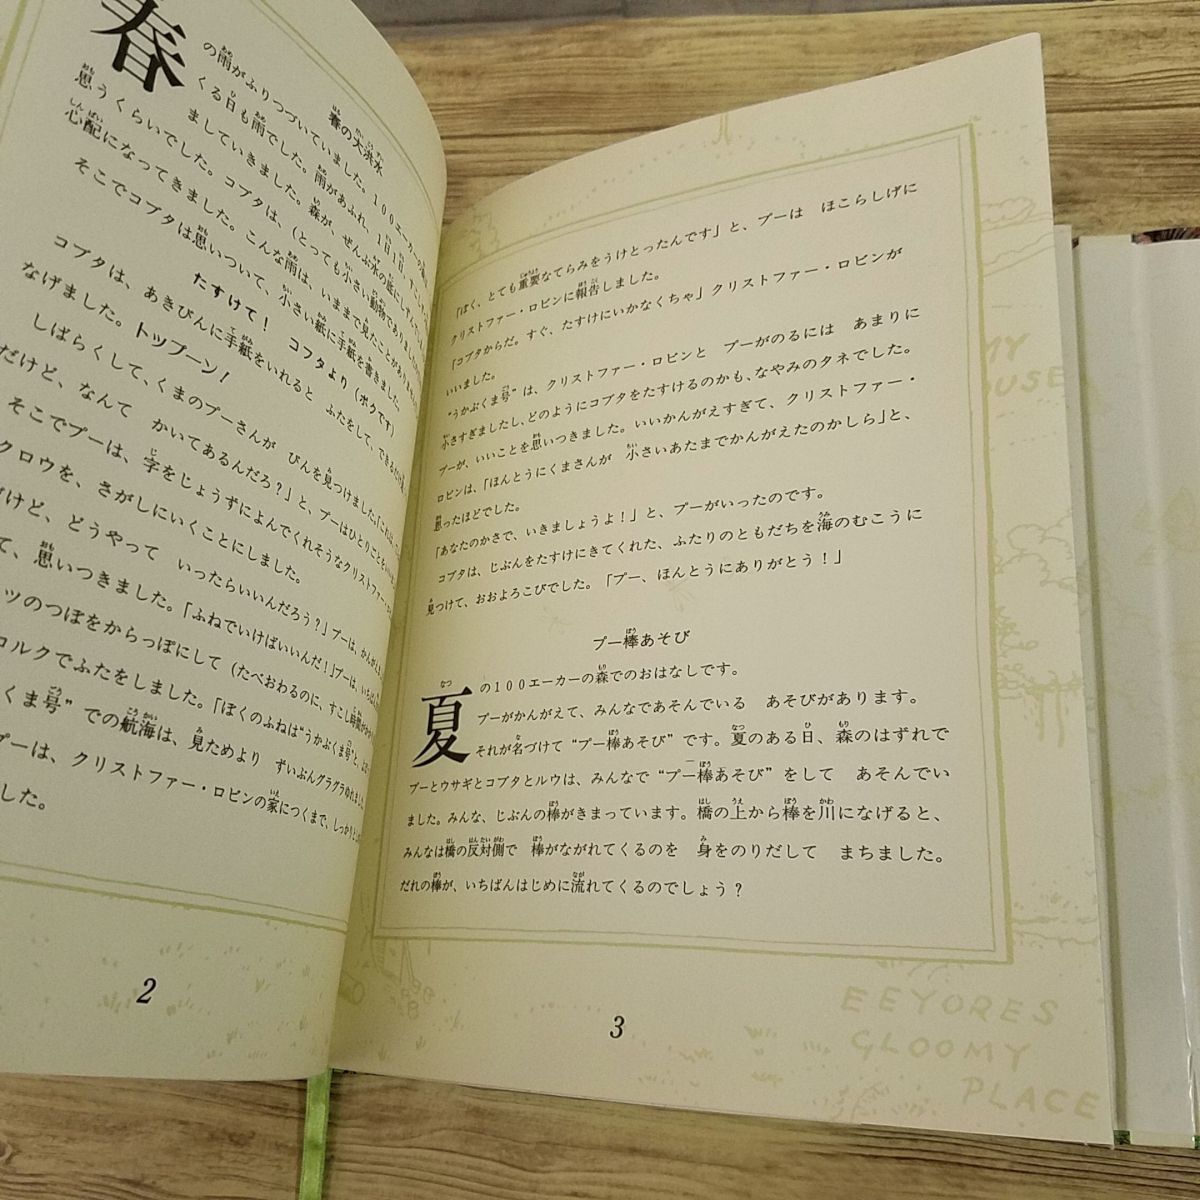 春の大洪水
春
の雨がふりつづいていました。100エーカーの
くる日も雨でした。雨があふれ、1日1日、すこし
ましていきました。森が、ぜんぶ水の底にしずんで
思うくらいでした。コブタは、(とっても小さい動物でありました
心配になってきました。こんな雨は、いままで見たことがありま
そこでコブタは思いついて、小さい紙に手紙を書きました。
たすけて! コブタより(ボクです)
コブタは、あきびんに手紙をいれると ふたをして、できるだけ
なげました。トップーン!
しばらくして、くまのプーさんが びんを見つけました。「これは、
だけど、なんて かいてあるんだろ?」と、プーはひとりごとを
そこでプーは、字をじょうずによんでくれそうなクリストファー・
クロウを、さがしにいくことにしました。
だけど、どうやって いったらいいんだろう?」プーは、かんがえ
て、思いつきました。「ふねでいけばいいんだ!」プーは、いちばん
ツのつぼをからっぽにして(たべおわるのに、すこし時間が
コルクでふたをしました。「ぼくのふねは“うかぶくま号”と、
くま号”での航海は、見ためより ずいぶんグラグラゆれました
プーは、クリストファー・ロビンの家につくまで、しっかり
した。
2
「ぼく、とても重要なてらみをうけとったんです」と、プーは ほこらしげに
クリストファー・ロビンに報告しました。
「コブタからだ。すぐ、たすけにいかなくちゃ」クリストファー・ロビンが
いいました。
“うかぶくま号”は、クリストファー・ロビンと プーがのるには あまりに
小さすぎましたし、どのようにコブタをたすけるのかも、なやみのタネでした。
プーが、いいことを思いつきました。いいかんがえすぎて、クリストファー・
ロビンは、「ほんとうにくまさんが 小さいあたまでかんがえたのかしら」と、
思ったほどでした。
「あなたのかさで、いきましょうよ!」と、プーがいったのです。
コブタは、じぶんをたすけにきてくれた、ふたりのともだちを海のむこうに
見つけて、おおよろこびでした。「プー、ほんとうにありがとう!」
プー棒あそび
夏の100エーカーの森でのおはなしです。
プーがかんがえて、みんなであそんでいる あそびがあります。
それが名づけて“プー棒あそび”です。夏のある日、森のはずれで
プーとウサギとコブタとルウは、みんなで“プー棒あそび”をして あそんでい
ました。みんな、じぶんの棒がきまっています。橋の上から棒を川になげると、
みんなは橋の反対側で 棒がながれてくるのを 身をのりだして まちました。
だれの棒が、いちばんはじめに流れてくるのでしょう?
3
MY
HOUSE
EEYORES
GLOOMY
PLACE